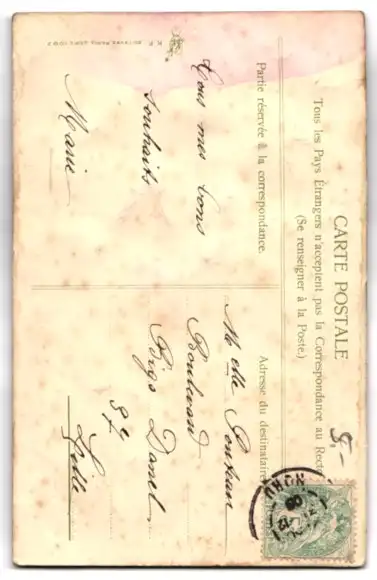 CARTE POSTALE
Tous les Pays Étrangers n'acceptent pas la Correspondance au Recto
(Se renseigner à la Poste.)
Partie réservée à la correspondance.
Adresse du destinataire
Tous mes bons
souhaits
Marie
Melle
Boulevard
Bigo Danel
Lille
8.-
NORD